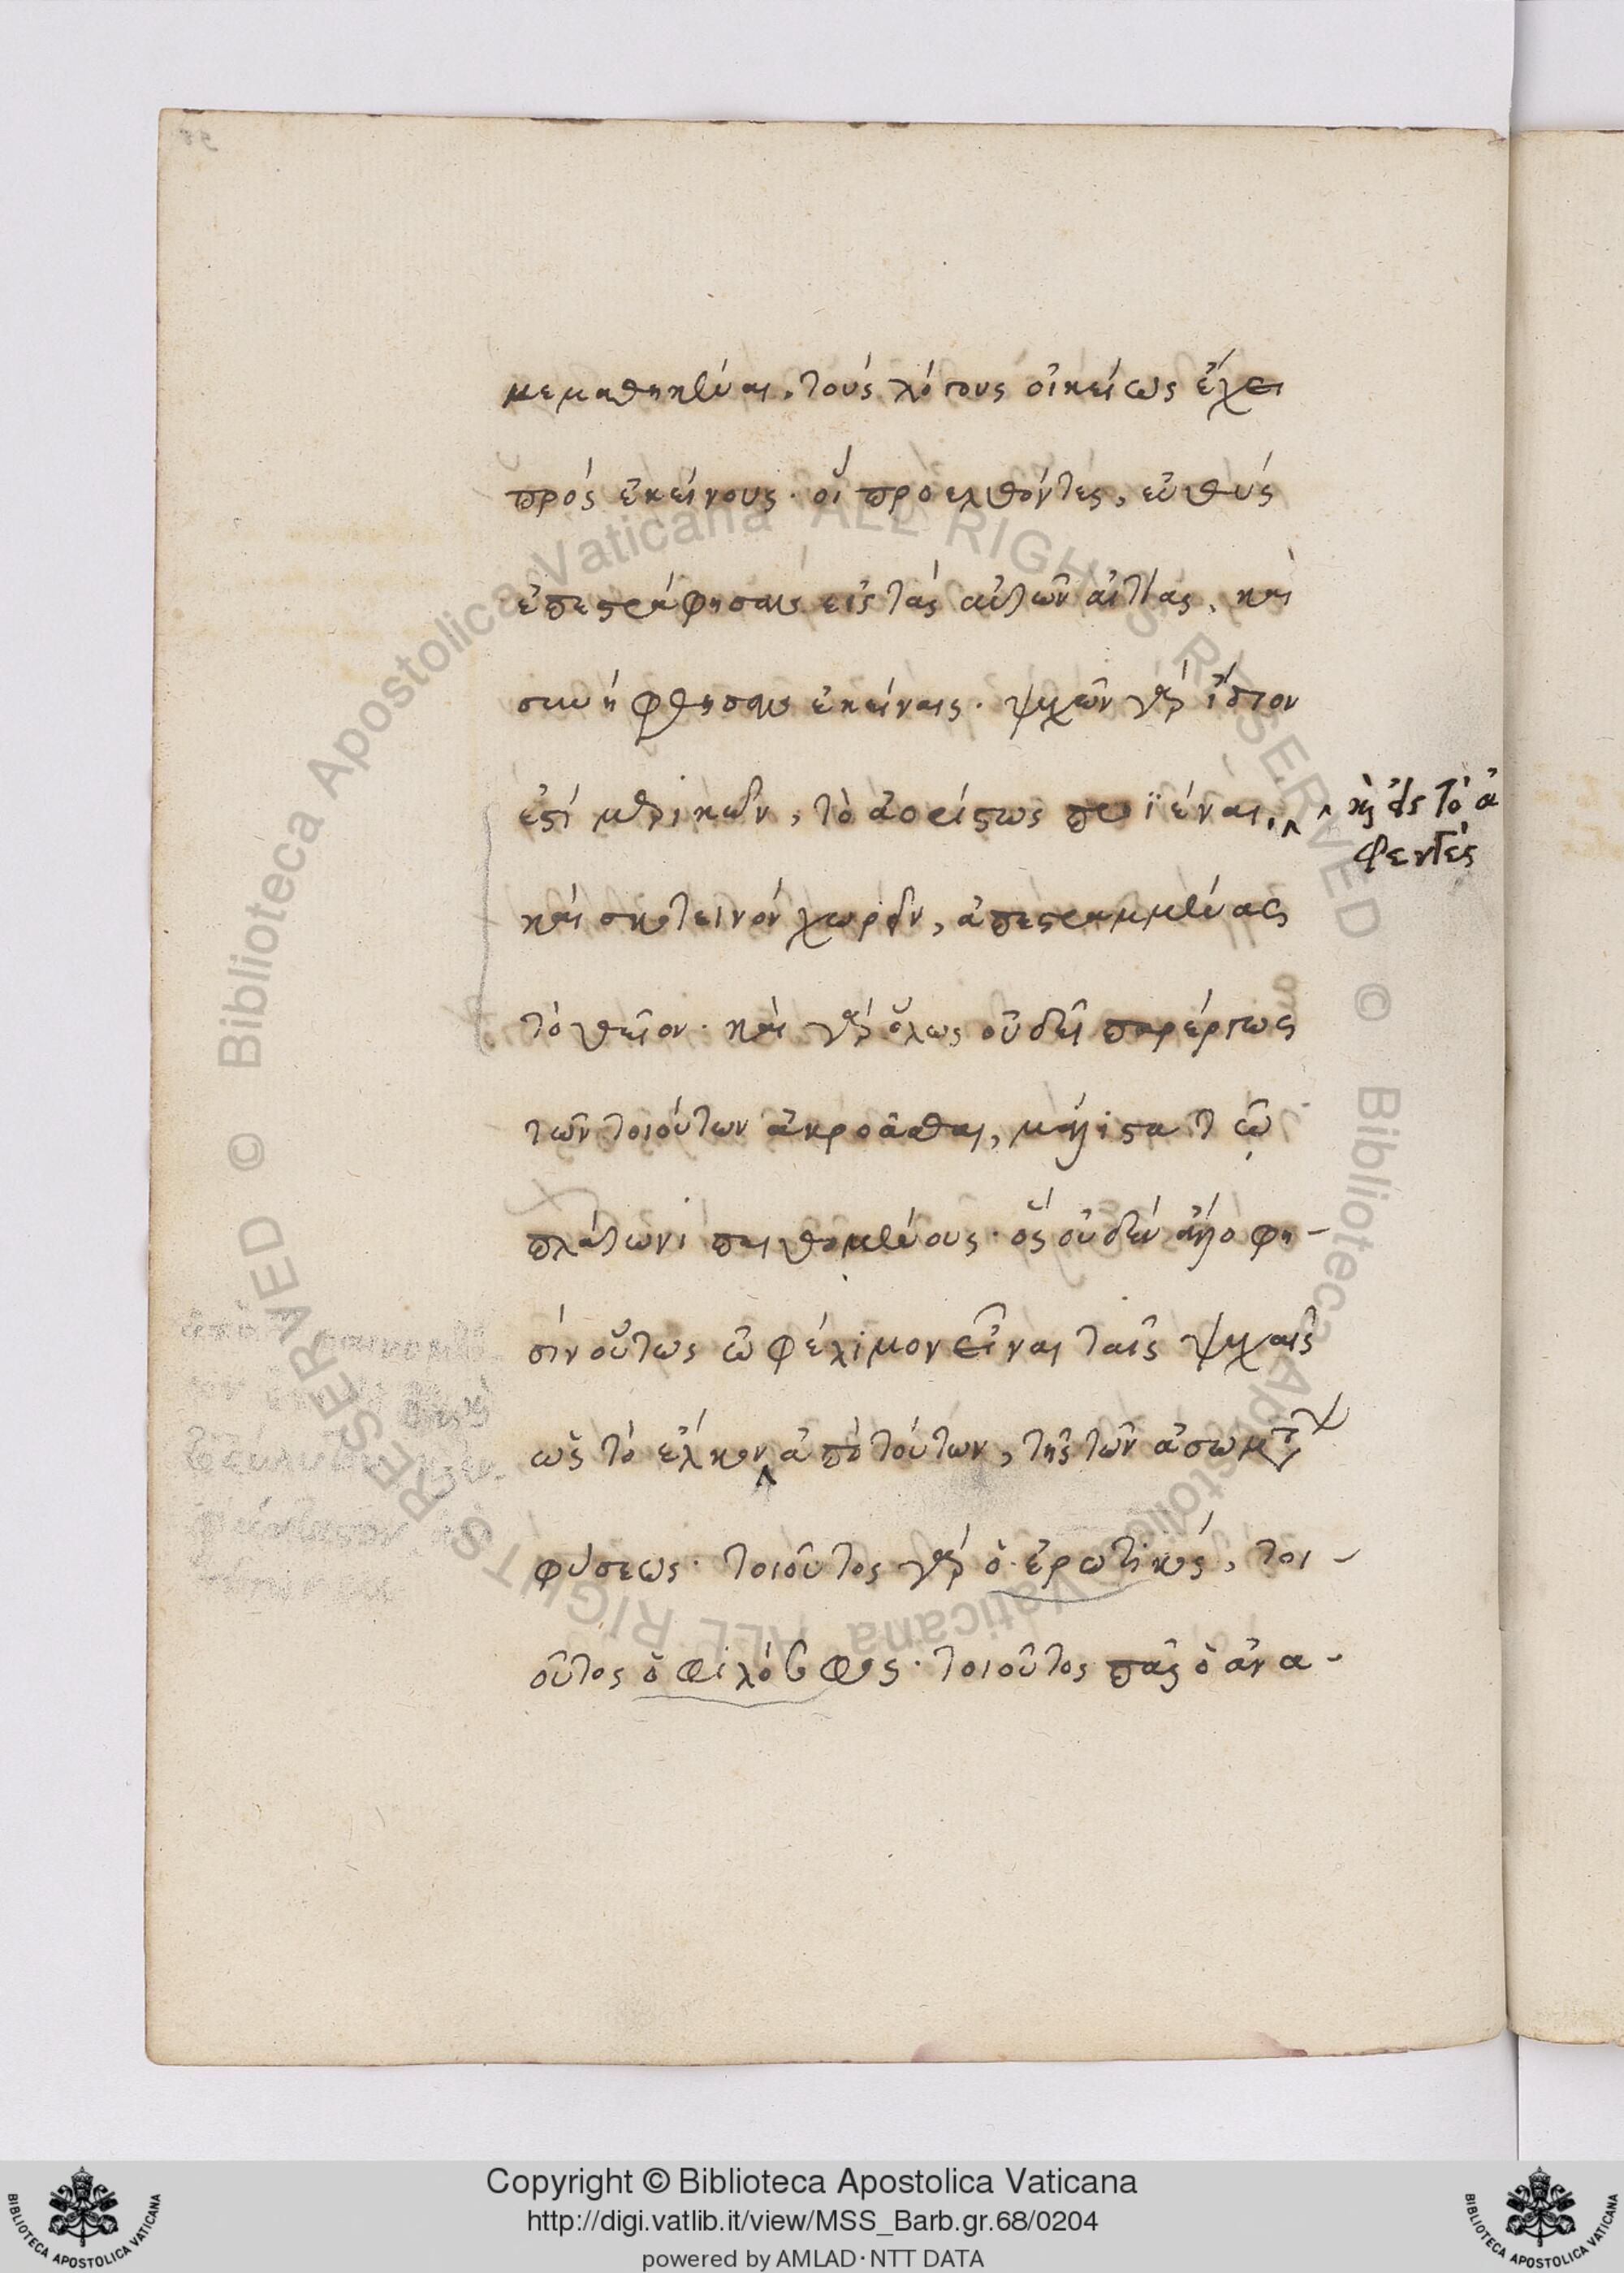 μεμαθηκέναι, τοὺς λόγους οἰκείως ἔχει
πρὸς ἐκείνους· οἳ προελθόντες, εὐθὺς
ἐπεστράφησαν εἰς τὰς αὐτῶν αἰτίας, καὶ
συνήφθησαν ἐκείναις· ψυχῶν γὰρ ἴδιον
ἐστὶ μερικῶν, τὸ ἀορίστως προϊέναι,
καὶ εἰς τὸ ἀ
φεγγὲς
καὶ σκοτεινὸν χωρεῖν, ἀπεστραμμένας
τὸ θεῖον· καὶ γὰρ ὅλως οὐ δεῖ παρέργως
τῶν τοιούτων ἀκροᾶσθαι, μάλιστα τῷ
πλάτωνι πειθομένους· ὃς οὐδὲν ἄλλο φη-
σὶν οὕτως ὠφέλιμον εἶναι ταῖς ψυχαῖς
ὡς τὸ ἕλκον ἀπὸ τούτων, τῆς τῶν ἀσωμάτων
φύσεως· τοιοῦτος γὰρ ὁ ἐρωτικός, τοι-
οῦτος ὁ φιλόσοφος· τοιοῦτος πᾶς ὁ ἀνα-
Copyright © Biblioteca Apostolica Vaticana
http://digi.vatlib.it/view/MSS_Barb.gr.68/0204
powered by AMLAD·NTT DATA
BIBLIOTECA APOSTOLICA VATICANA
BIBLIOTECA APOSTOLICA VATICANA
© Biblioteca Apostolica Vaticana ALL RIGHTS RESERVED
© Biblioteca Apostolica Vaticana ALL RIGHTS RESERVED